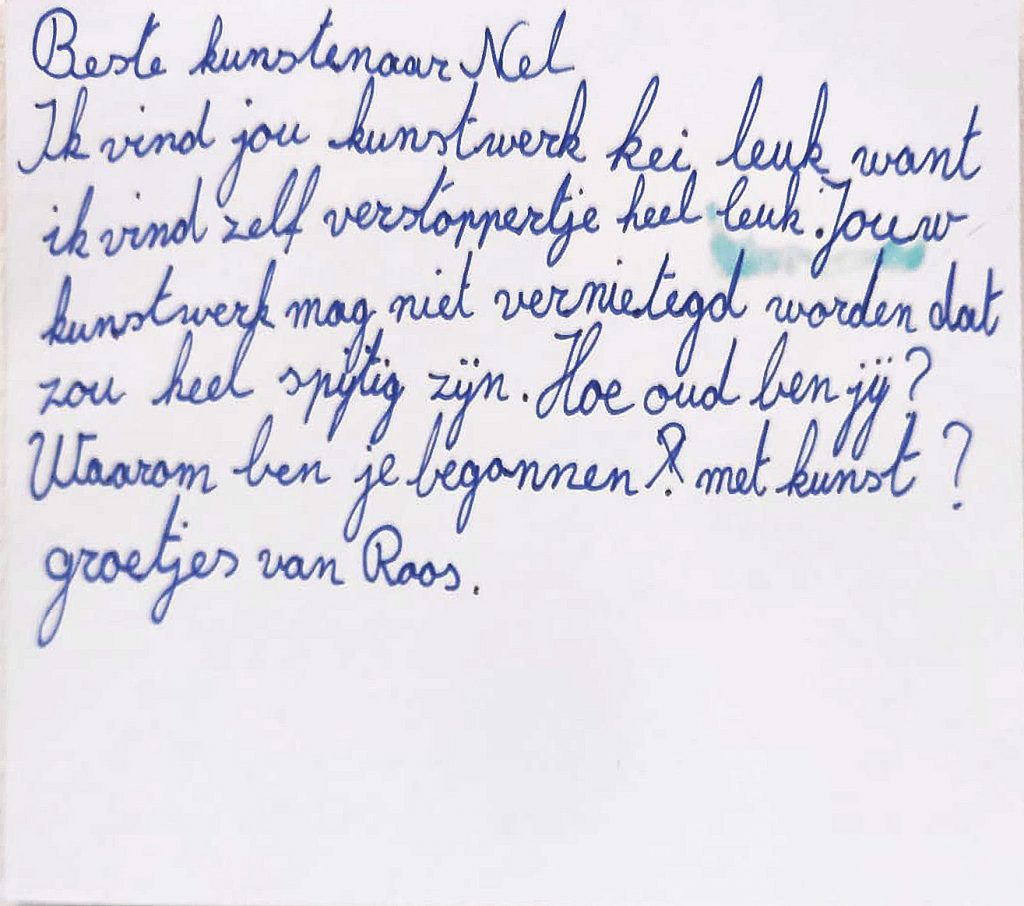 Beste kunstenaar Nel
Ik vind jou kunstwerk kei leuk want
ik vind zelf verstoppertje heel leuk. Jouw
kunstwerk mag niet vernietegd worden dat
zou heel spijtig zijn. Hoe oud ben jij?
Waarom ben je begonnen met kunst?
groetjes van Roos.